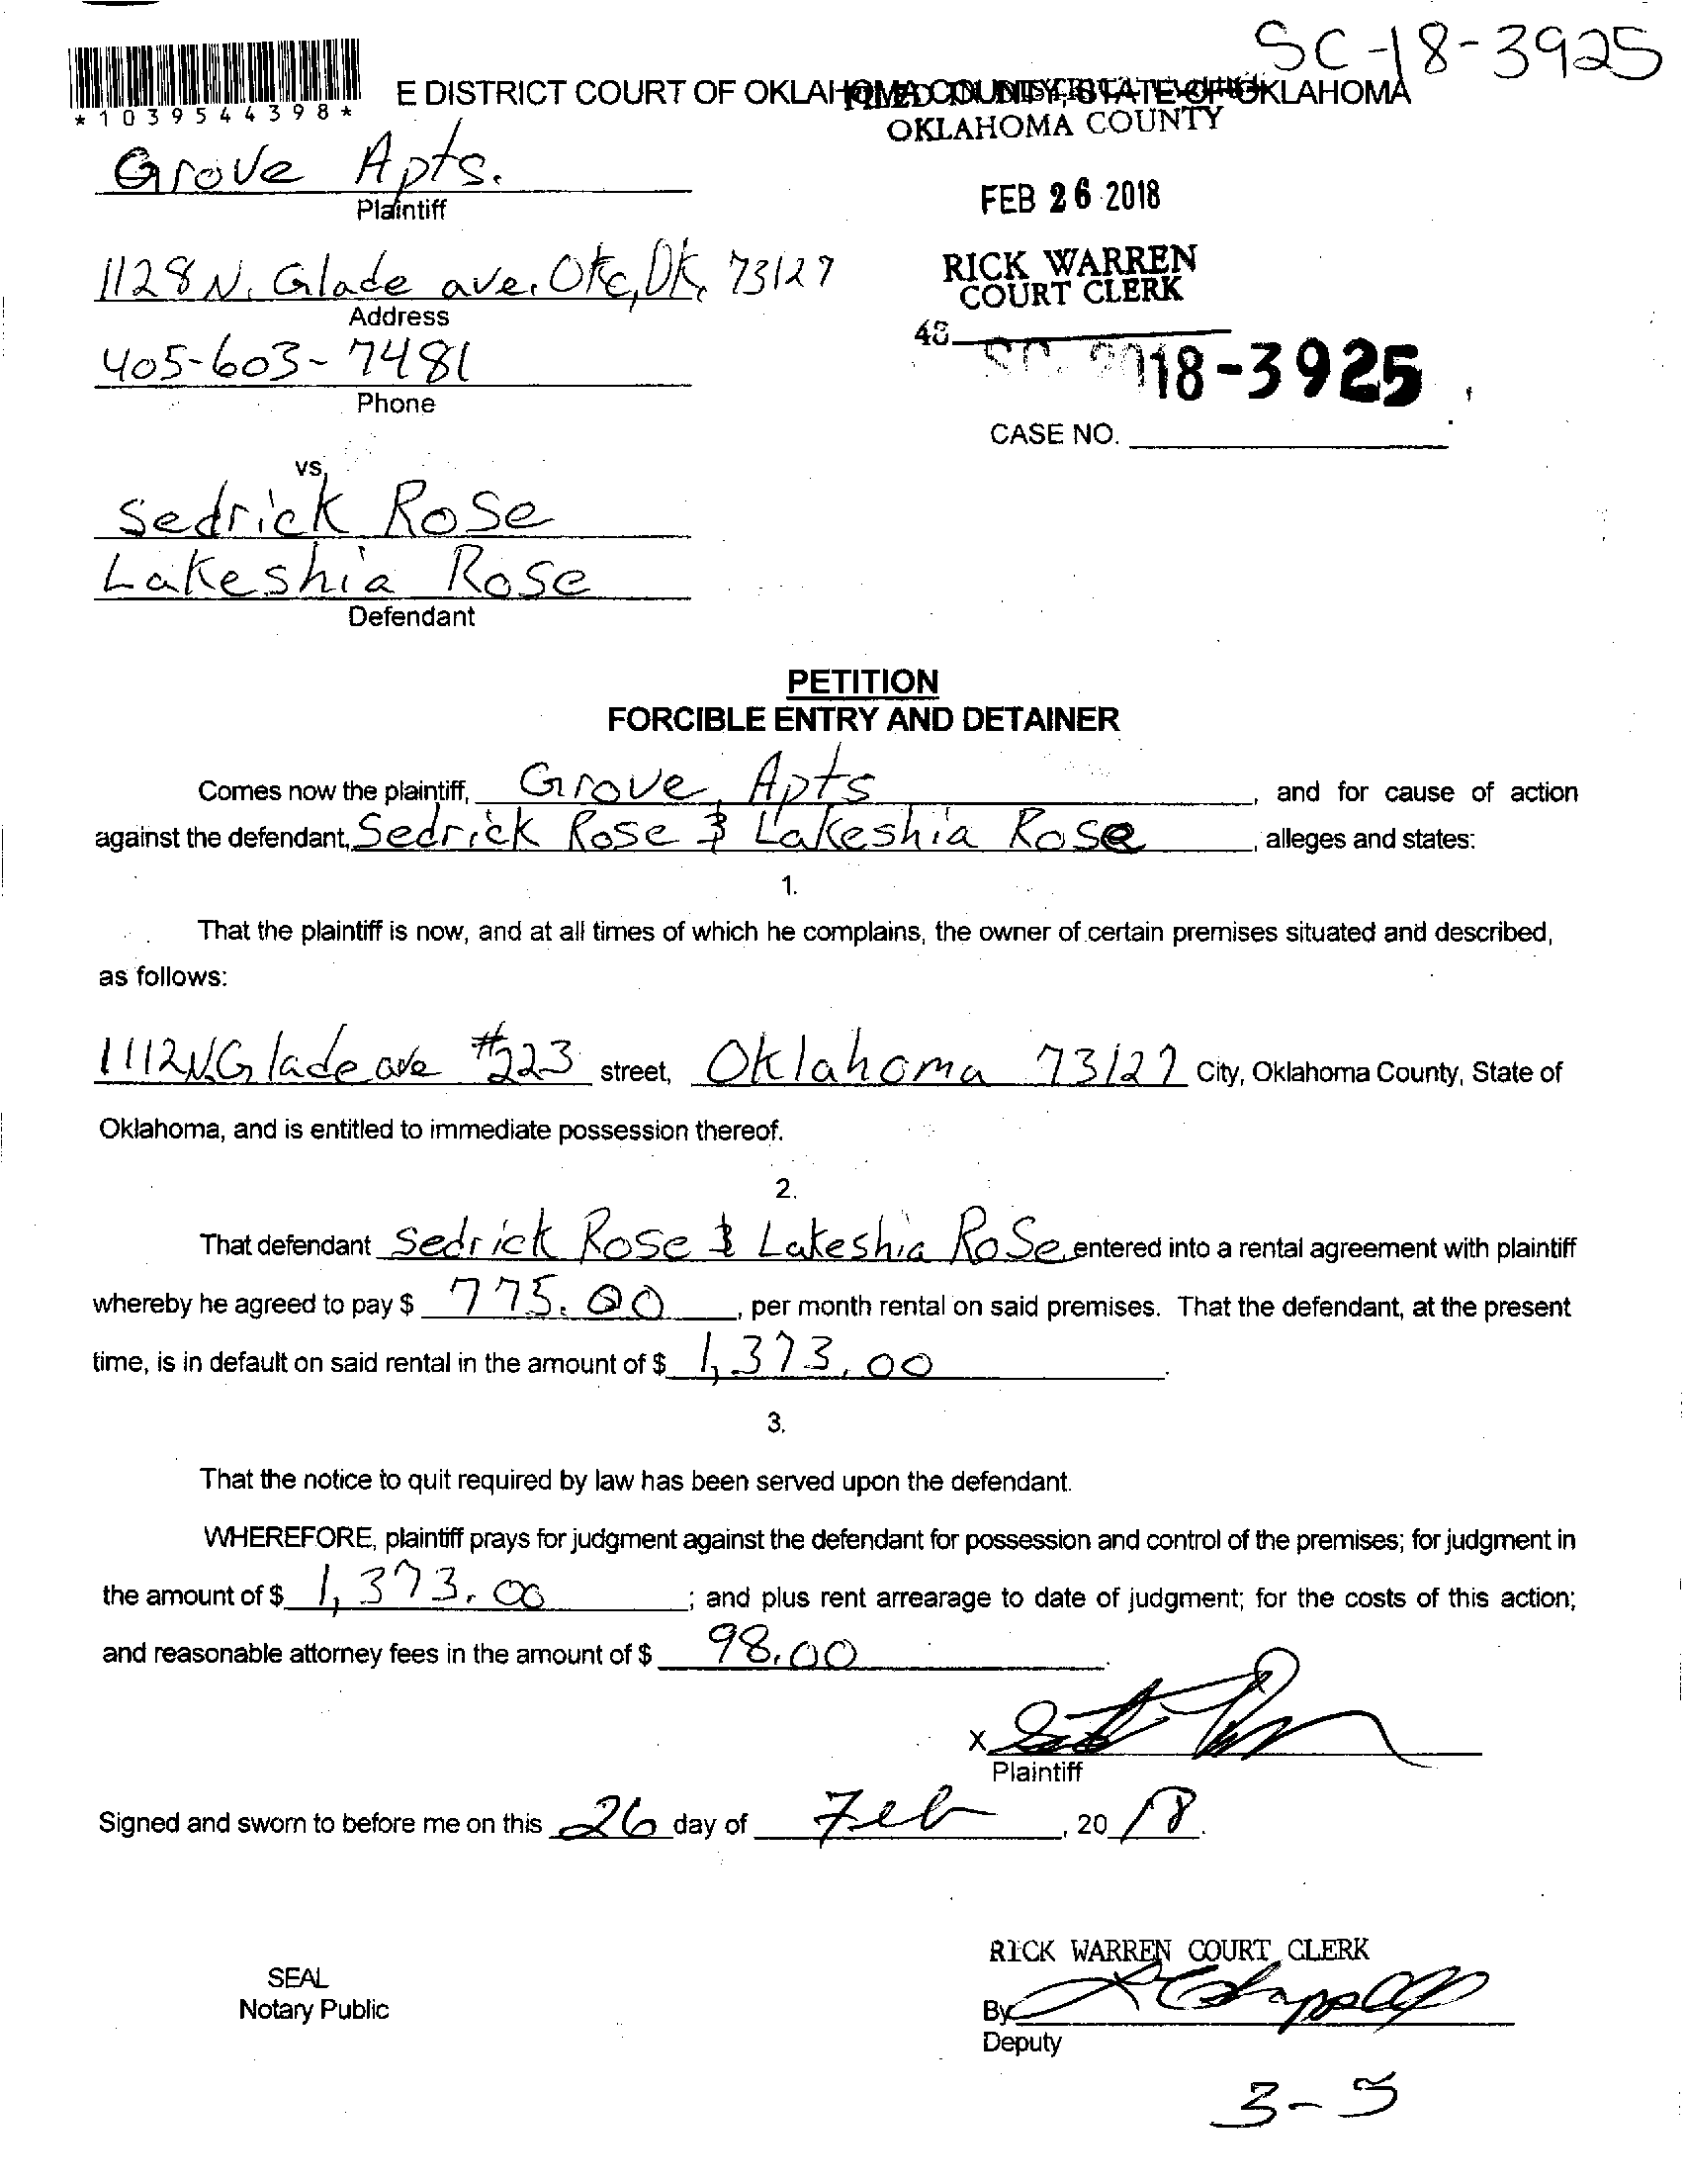 SC-18-3925
*1039544398*
E DISTRICT COURT OF OKLAHOMA COUNTY, STATE OF OKLAHOMA
OKLAHOMA COUNTY
Grove Apts.
Plaintiff
FEB 26 2018
1128 N. Glade ave. Okc, OK, 73127
Address
RICK WARREN
COURT CLERK
405-603-7481
Phone
48
SC 2018-3925
CASE NO.
vs.
Sedrick Rose
Lakeshia Rose
Defendant
PETITION
FORCIBLE ENTRY AND DETAINER
Comes now the plaintiff, Grove Apts and for cause of action
against the defendant, Sedrick Rose & Lakeshia Rose, alleges and states:
1.
That the plaintiff is now, and at all times of which he complains, the owner of certain premises situated and described,
as follows:
1112 N. Glade ave #223 street, Oklahoma 73127 City, Oklahoma County, State of
Oklahoma, and is entitled to immediate possession thereof.
2.
That defendant Sedrick Rose & Lakeshia Rose entered into a rental agreement with plaintiff
whereby he agreed to pay $ 775.00, per month rental on said premises. That the defendant, at the present
time, is in default on said rental in the amount of $ 1,373.00.
3.
That the notice to quit required by law has been served upon the defendant.
WHEREFORE, plaintiff prays for judgment against the defendant for possession and control of the premises; for judgment in
the amount of $ 1,373.00; and plus rent arrearage to date of judgment; for the costs of this action;
and reasonable attorney fees in the amount of $ 98.00.
x
Plaintiff
Signed and sworn to before me on this 26 day of Feb, 2018.
RICK WARREN COURT CLERK
SEAL
Notary Public
By
Deputy
3-5